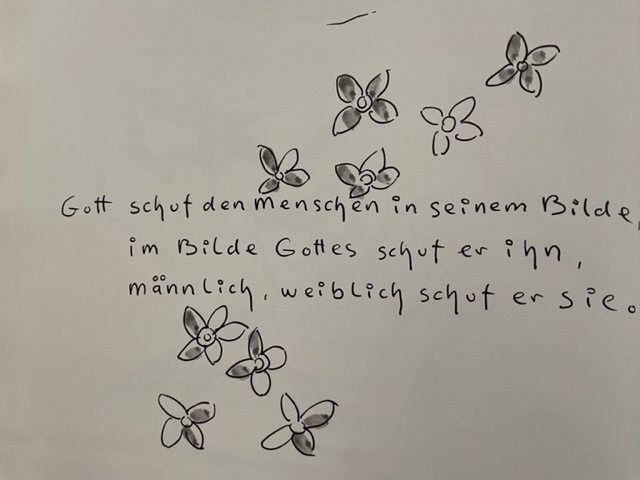 Gott schuf den menschen in seinem Bilde,
im Bilde Gottes schuf er ihn,
männlich, weiblich schuf er sie.